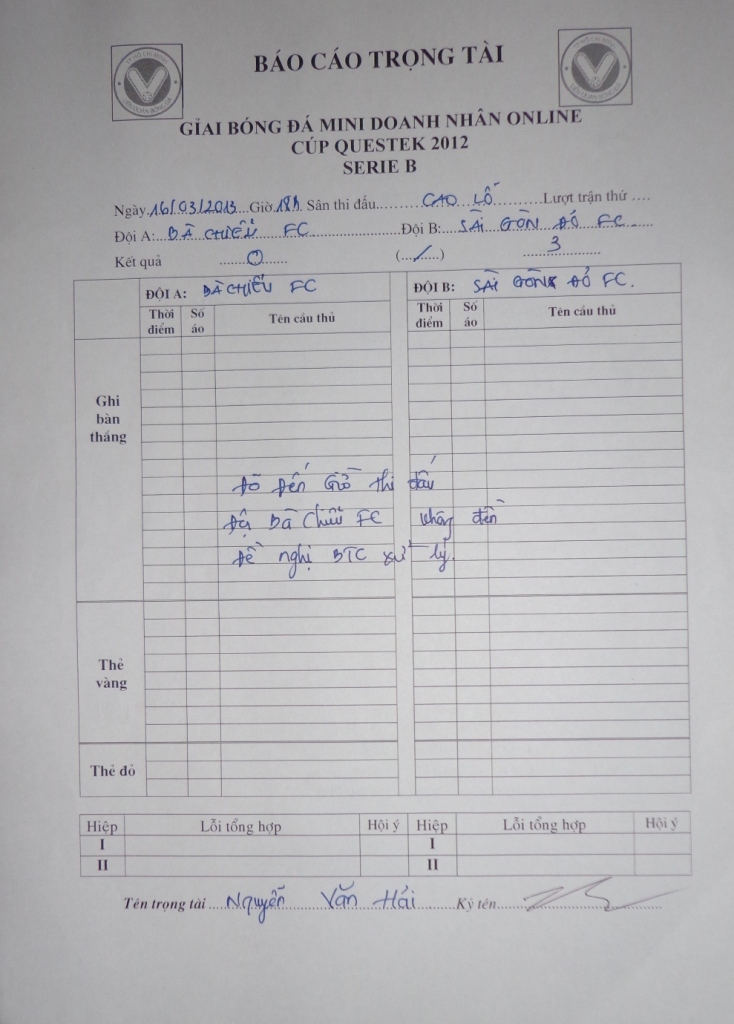 BÁO CÁO TRỌNG TÀI
GIẢI BÓNG ĐÁ MINI DOANH NHÂN ONLINE
CÚP QUESTEK 2012
SERIE B
Ngày 16/03/2013 Giờ 18h Sân thi đấu CAO LỖ Lượt trận thứ ....
Đội A: BÀ CHIỂU FC Đội B: SÀI GÒN ĐỎ FC
Kết quả 0 (.../....) 3
ĐỘI A: BÀ CHIỂU FC ĐỘI B: SÀI GÒN ĐỎ FC.
Thời điểm Số áo Tên cầu thủ Thời điểm Số áo Tên cầu thủ
Ghi bàn thắng
Đã đến Giờ thi đấu
Đội Bà Chiểu FC không đến
Đề nghị BTC xử lý.
Thẻ vàng
Thẻ đỏ
Hiệp Lỗi tổng hợp Hội ý Hiệp Lỗi tổng hợp Hội ý
I I
II II
Tên trọng tài Nguyễn Văn Hải Ký tên